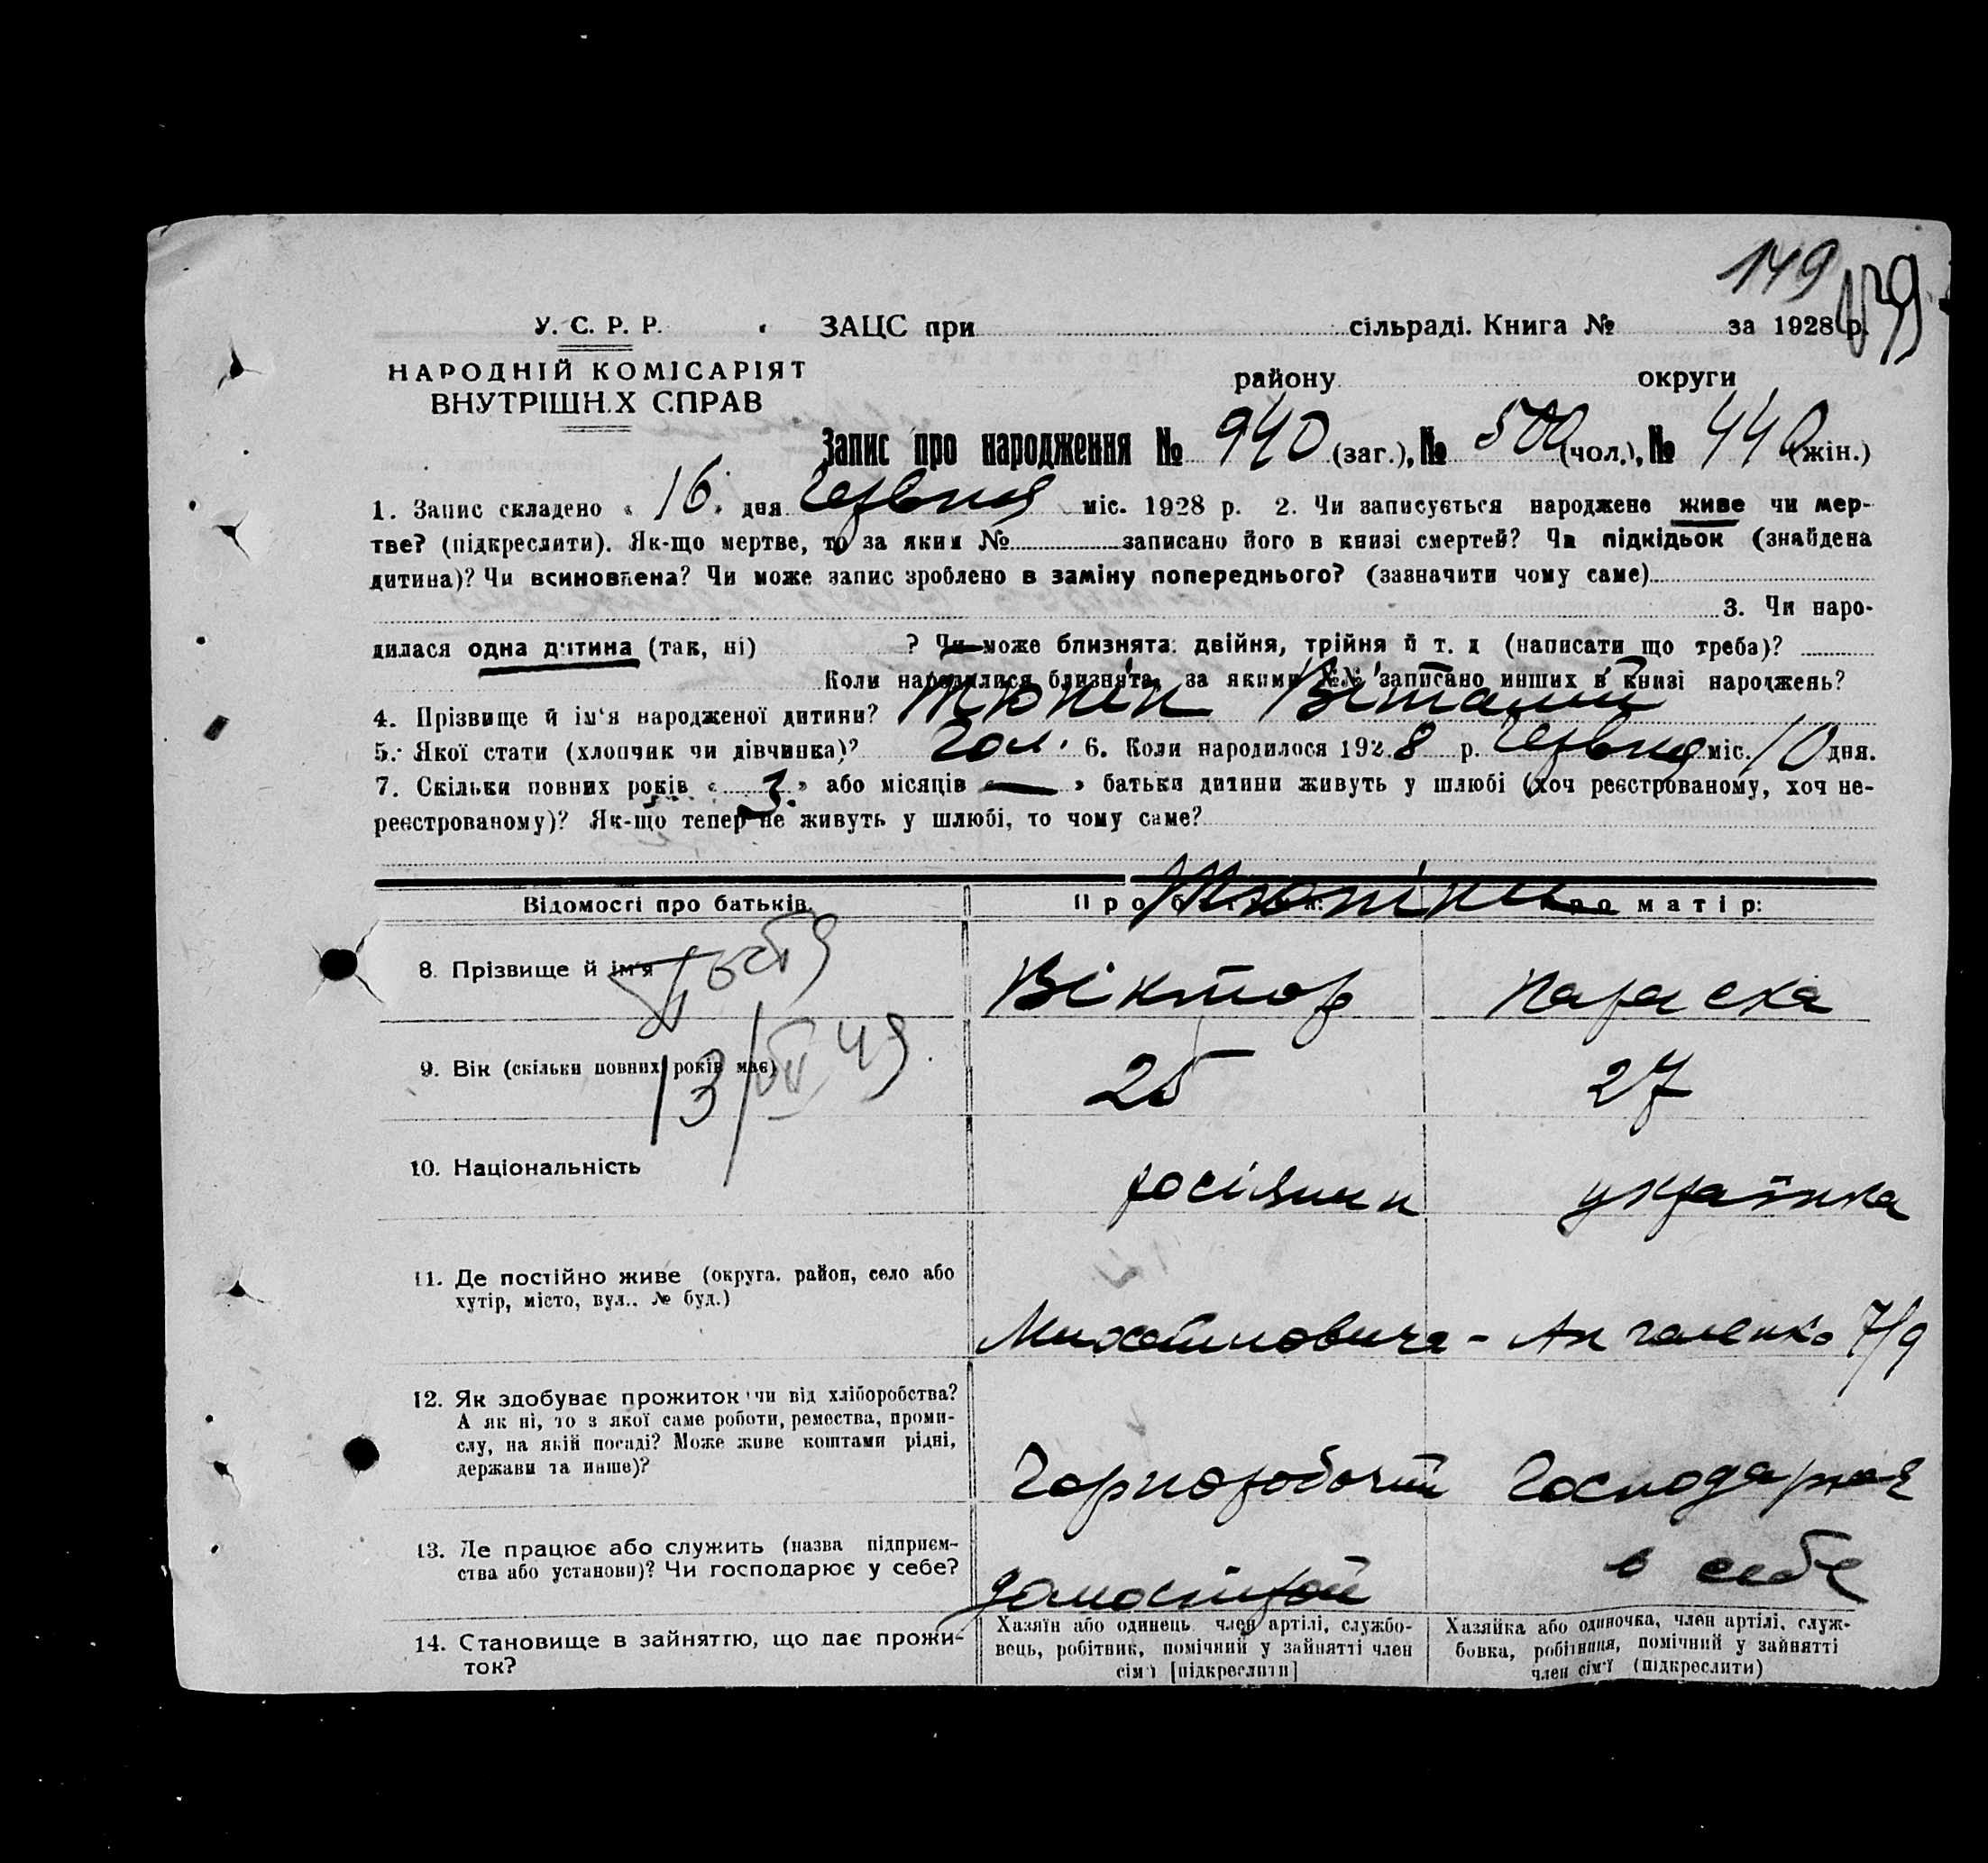 149
У. С. Р. Р.
ЗАЦС при сільраді. Книга № за 1928 р.
НАРОДНІЙ КОМІСАРІЯТ
ВНУТРІШН.Х СПРАВ
району округи
Запис про народження № 940 (заг.), № 500 (чол.), № 440 (жін.)
1. Запис складено « 16 » дня Червня міс. 1928 р. 2. Чи записується народжене живе чи мер-
тве? (підкреслити). Як-що мертве, то за яким № записано його в книзі смертей? Чи підкідьок (знайдена
дитина)? Чи всиновлена? Чи може запис зроблено в заміну попереднього? (зазначити чому саме)
3. Чи наро-
дилася одна дитина (так, ні) ? Чи може близнята: двійня, трійня й т. д (написати що треба)?
Коли народилися близнята, за якими №№ записано инших в книзі народжень?
4. Прізвище й ім'я народженої дитини? Тюпін Віталий
5. Якої стати (хлопчик чи дівчинка)? Чол. 6. Коли народилося 1928 р. Червня міс. 10 дня.
7. Скільки повних років « 3 » або місяців « — » батьки дитини живуть у шлюбі (хоч реєстрованому, хоч не-
реєстрованому)? Як-що тепер не живуть у шлюбі, то чому саме?
Тюпіни
Відомості про батьків. Про матір:
8. Прізвище й ім'я Віктор Параска
9. Вік (скільки повних років має) 25 27
13/ 49
10. Національність росіянин українка
11. Де постійно живе (округа, район, село або
хутір, місто, вул.. № буд.)
7/9
12. Як здобуває прожиток чи від хліборобства?
А як ні, то з якої саме роботи, ремества, проми-
слу, на якій посаді? Може живе коштами рідні,
держави та инше)?
Чорноробочий Господарює
13. Де працює або служить (назва підприєм-
ства або установи)? Чи господарює у себе?
в себе
14. Становище в зайняттю, що дає прожи-
ток?
Хазяїн або одинець член артілі, службо-
вець, робітник, помічний у зайнятті член
сім'ї [підкреслити]
Хазяйка або одиночка, член артілі, служ-
бовка, робітниця, помічний у зайнятті
член сім'ї (підкреслити)